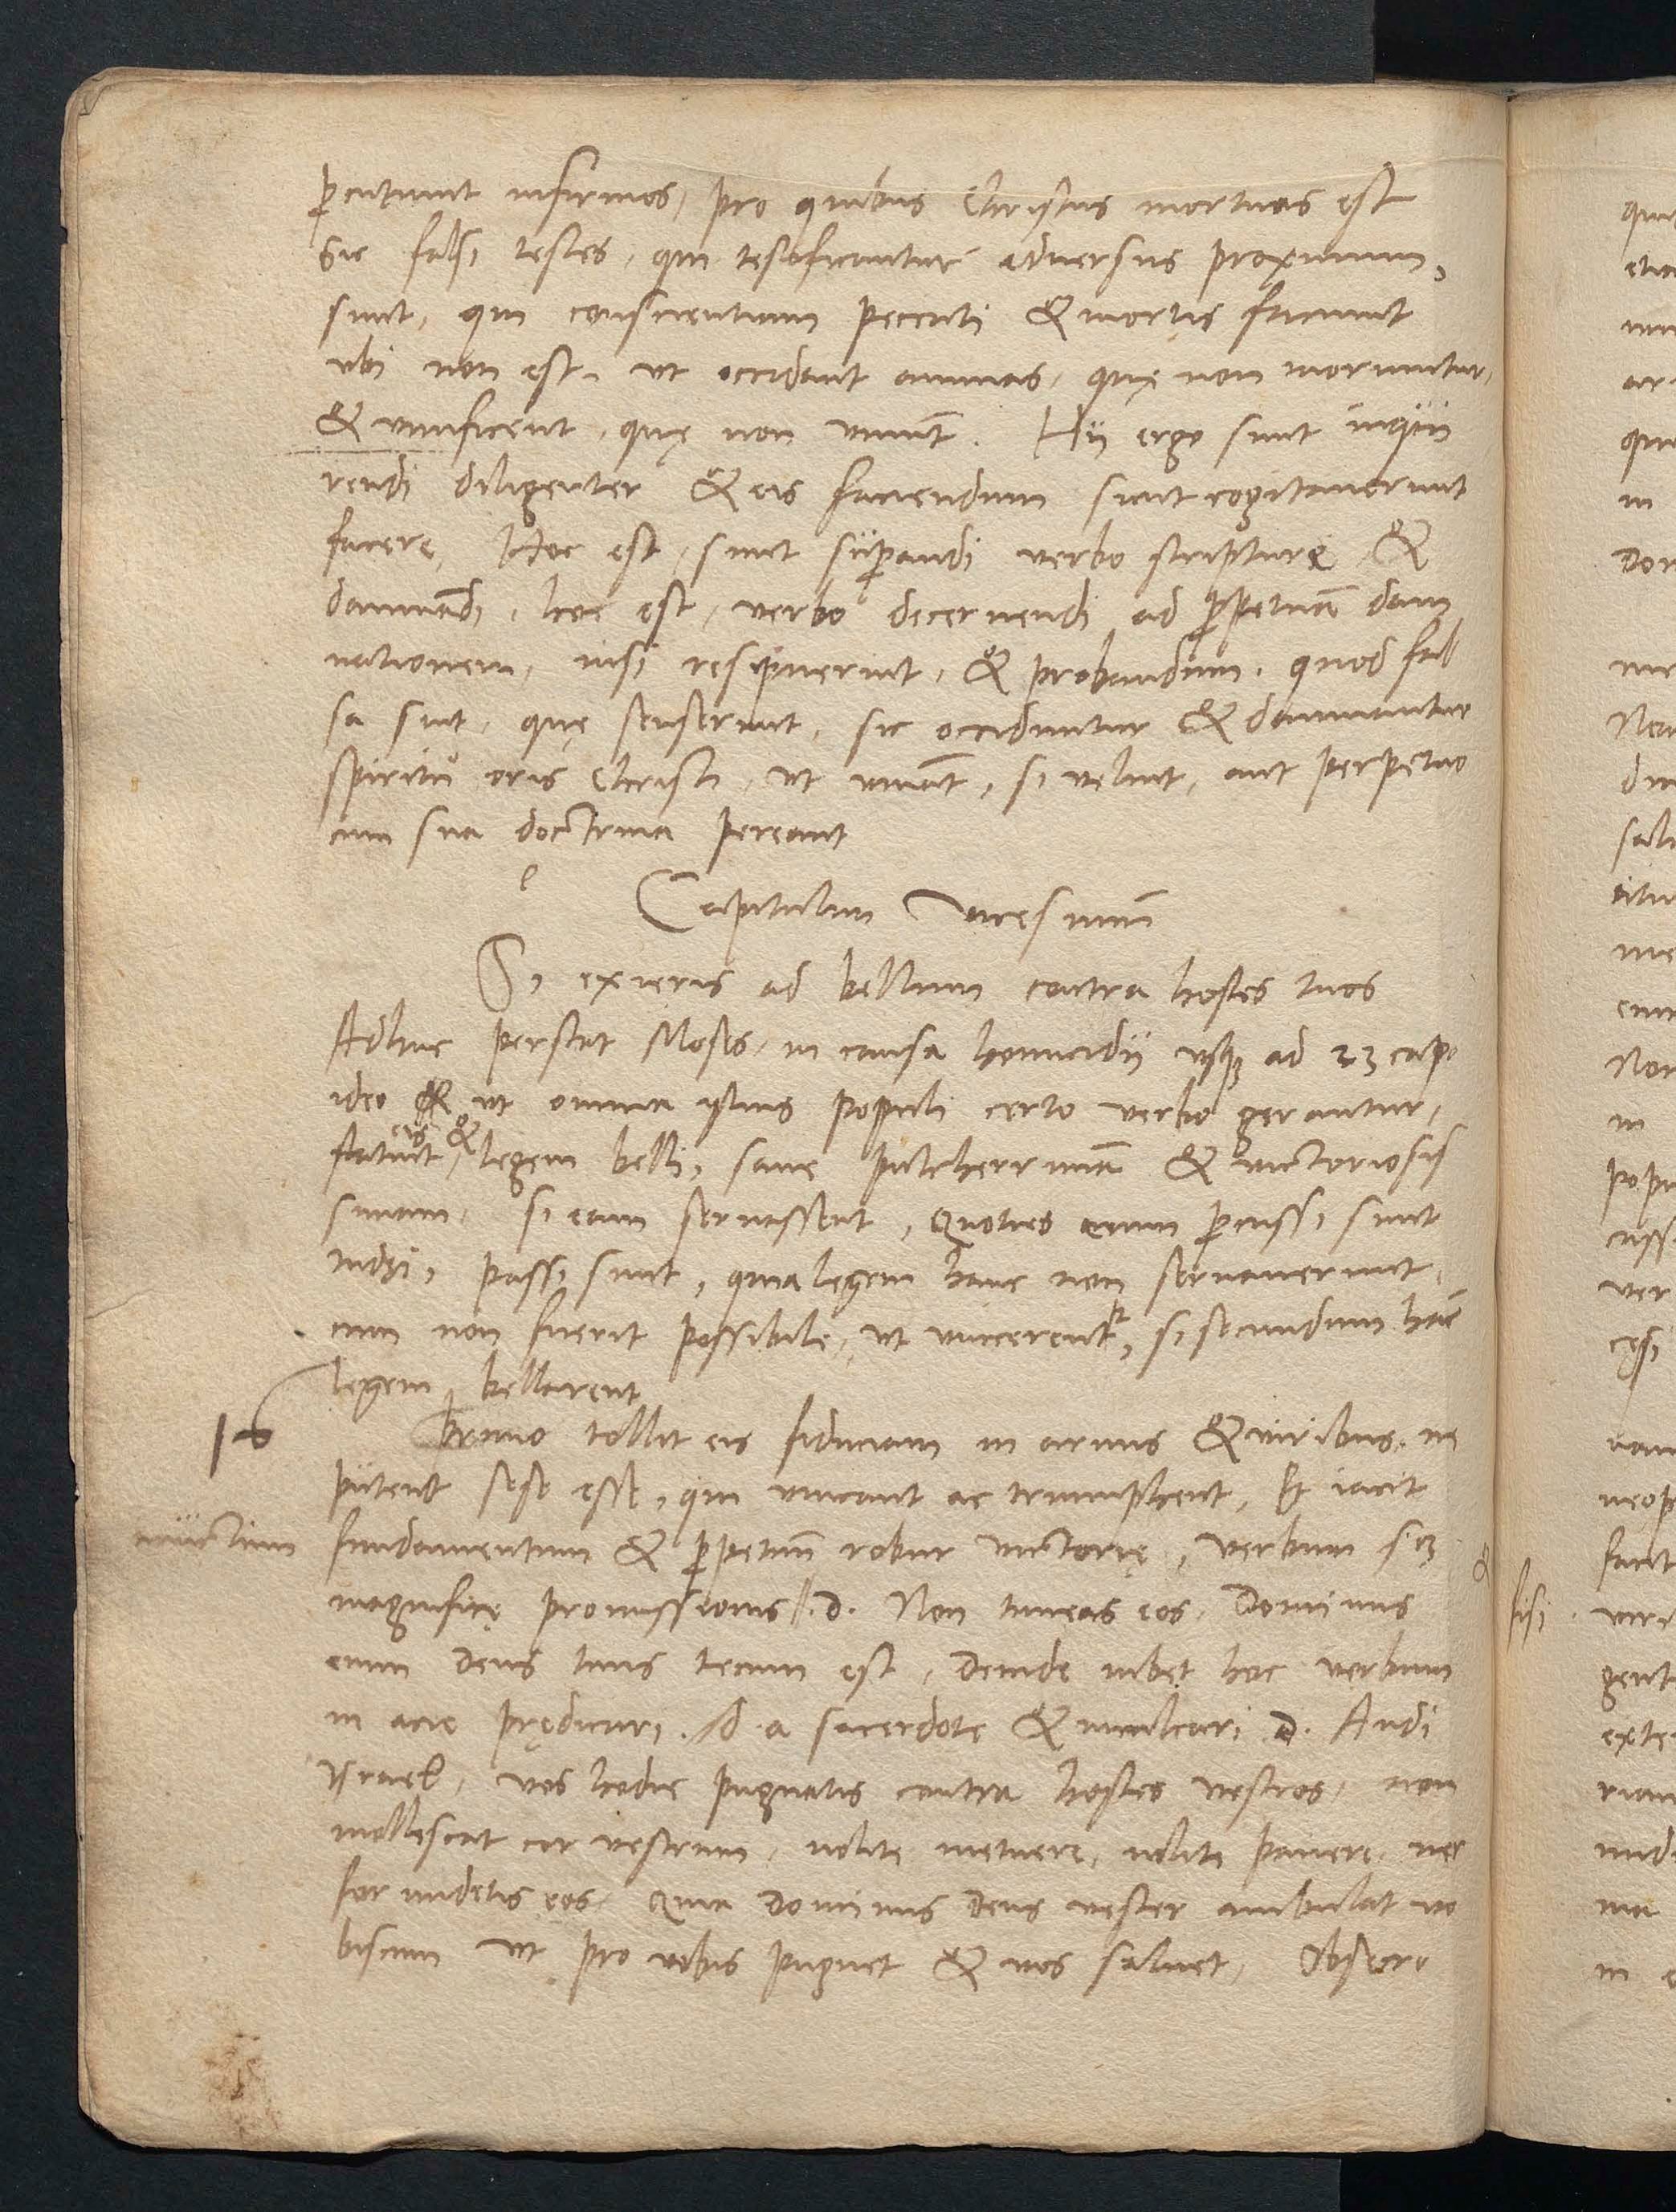 p̱cutiunt infirmos, pro quibus Christus mortuus est
Sic falsi testes, qui testificantur adversus proximum,
sunt, qui conscientiam peccati & mortis faciunt
ubi non est, ut occidant animas, quę non moriuntur,
& vivificent, quę non vivūt. Hij ergo sunt inqui
rendi diligenter & eis faciendum sicut cogitaverunt
facere, Hoc est, sunt sup̱andi verbo scripturę &
damnādi, hoc est, verbo decernendi ad p̱petuā dam
nationem, nisi resipuerint, & probandum, quod fal
sa sint, quę senserunt, sic occiduntur & damnantur
spiritu oris Christi, ut vivāt, si velint, aut perpetuo
cum sua doctrina pereant
Capitulum vicesimū
Si exieris ad bellum contra hostes tuos
Adhuc perstat Moses, in causa homicidij usq; ad 23 cap
ideo & ut omnia istius populi certo verbo gerantur,
statuit eis & legem belli, sane pulcherrimā & victoriosis
simam, si eam servassent, Quoties enim p̱cussi sunt
iudęi, passi sunt, quia legem hanc non servaverunt,
cum non fuerit possibile, ut vincerentr, si secundum hāc
legem bellarent
Primo tollit eis fiduciam in armis & viribus, ne
putent sese esse, qui vincant ac triumphent, Et iacit
invictum fundamentum & p̱petuū robur victorię, verbum sz
magnificę promissionis .d. Non timeas eos, Dominus
enim Deus tuus tecum est, Deinde iubet hoc verbum
in acie prędicari a sacerdote & inculcari .d. Audi
Israel, vos hodie pugnatis contra hostes vestros, non
mollescat cor vestrum, nolite metuere, nolite pavere, nec
formidetis eos, Quia Dominus Deus vester ambulat vo
biscum ut pro vobis pugnet & vos salvet, Obsecro